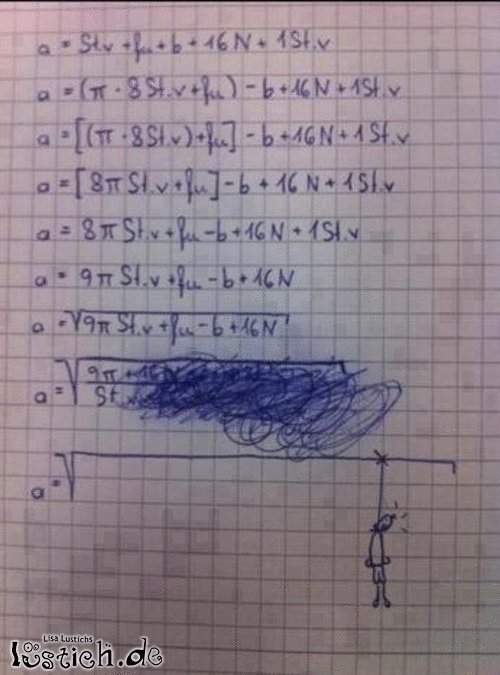 a = St.v + fu + b + 16 N + 1 St.v
a = (π · 8 St.v + fu) - b + 16 N + 1 St.v
a = [(π · 8 St.v) + fu] - b + 16 N + 1 St.v
a = [8π St.v + fu] - b + 16 N + 1 St.v
a = 8π St.v + fu - b + 16 N + 1 St.v
a = 9π St.v + fu - b + 16 N
a = √9π St.v + fu - b + 16 N
a = √9π + 16 N
St.v
a = √
Lisa Lustichs
lustich.de